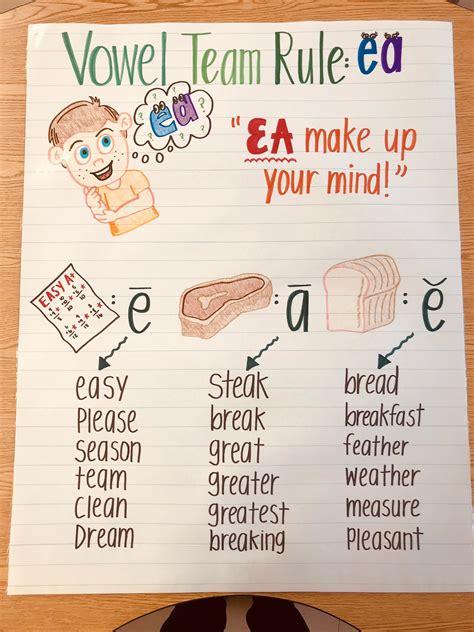 Vowel Team Rule: ea
ea
"EA make up
your mind!"
EASY A+
: ē
: ā
: ĕ
easy
Please
season
team
Clean
Dream
steak
break
great
greater
greatest
breaking
bread
breakfast
feather
weather
measure
Pleasant